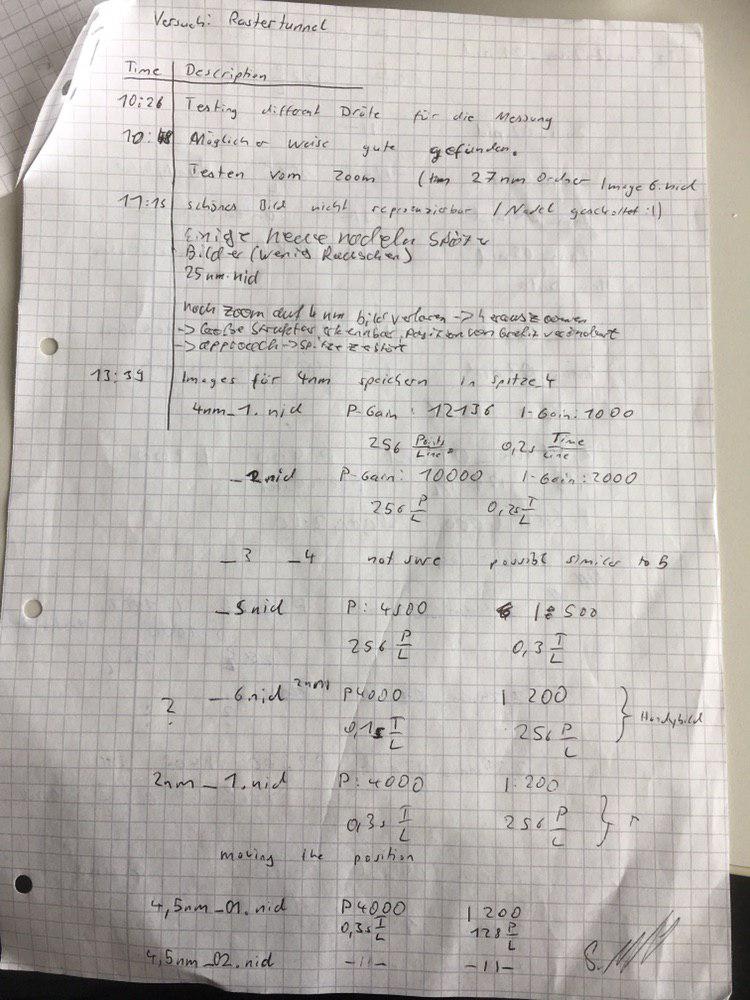 Versuch: Rastertunnel
Time Description
10:26 Testing different Dräte für die Messung
10: Möglicher weise gute gefunden.
Testen vom zoom ( 27nm Ordner Image 6.nid
11:15 schönes Bild nicht reproduzierbar / Nadel :()
Einige neue nadeln später
Bilder (wenig Rauschen)
25nm.nid
noch zoom auf 4nm bild verloren -> herauszoomen
-> Große Struktur erkennbar, Position von Grafit verändert
-> approach -> spitze zestört
13:39 Images für 4nm speichern in spitze_4
4nm_1.nid P-Gain: 12136 I-Gain: 1000
256 Points/Line. 0,2s Time/Line
_2.nid P-Gain: 10000 I-Gain: 2000
256 P/L 0,2s T/L
_3 _4 not sure possible similar to 5
_5nid P: 4500 I: 500
256 P/L 0,3 T/L
? _6.nid 2nm P4000 I 200 } Handybild
0,1s T/L 256 P/L
2nm_1.nid P: 4000 I: 200
0,3s T/L 256 P/L }
moving the position
4,5nm_01.nid P4000 I 200
0,3s T/L 128 P/L
4,5nm_02.nid -11- -11- S.